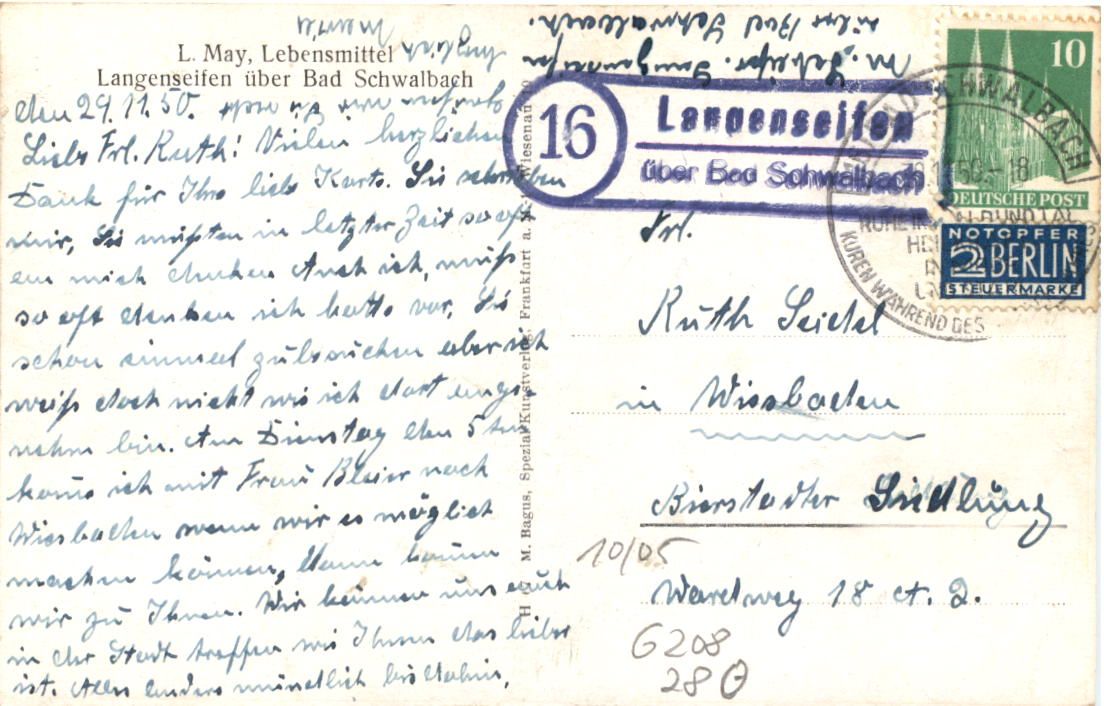 L. May, Lebensmittel
Langenseifen über Bad Schwalbach
den 29.11.50.
Liebe Frl. Ruth! Vielen herzlichen
Dank für Ihre liebe Karte. Sie schreiben
mir, Sie müßten in letzter Zeit so oft
an mich denken Auch ich, muß
so oft denken ich hatte vor, Sie
schon einmal zu besuchen aber ich
weiß doch nicht wie ich dort ange-
nehm bin. Am Dienstag den 5ten
komme ich mit Frau Bleier nach
Wiesbaden wenn wir es möglich
machen können, dann kommen
wir zu Ihnen. Wir können uns auch
in der Stadt treffen wie Ihnen das lieber
ist. Alles andere mündlich bis dahin,
M. Schäfer. Langenseifen
über Bad Schwalbach.
H M. Bagus, Spezial-Kunstverlag, Frankfurt a. M. Wiesenau
16
Langenseifen
über Bad Schwalbach
BAD SCHWALBACH
50.-18
KUREN WÄHREND DES
10
DEUTSCHE POST
NOTOPFER
2 BERLIN
STEUERMARKE
Frl.
Ruth Seidel
in Wiesbaden
Bierstadter Siedlung
Wardweg 18 et. 2.
10/05
G208
28